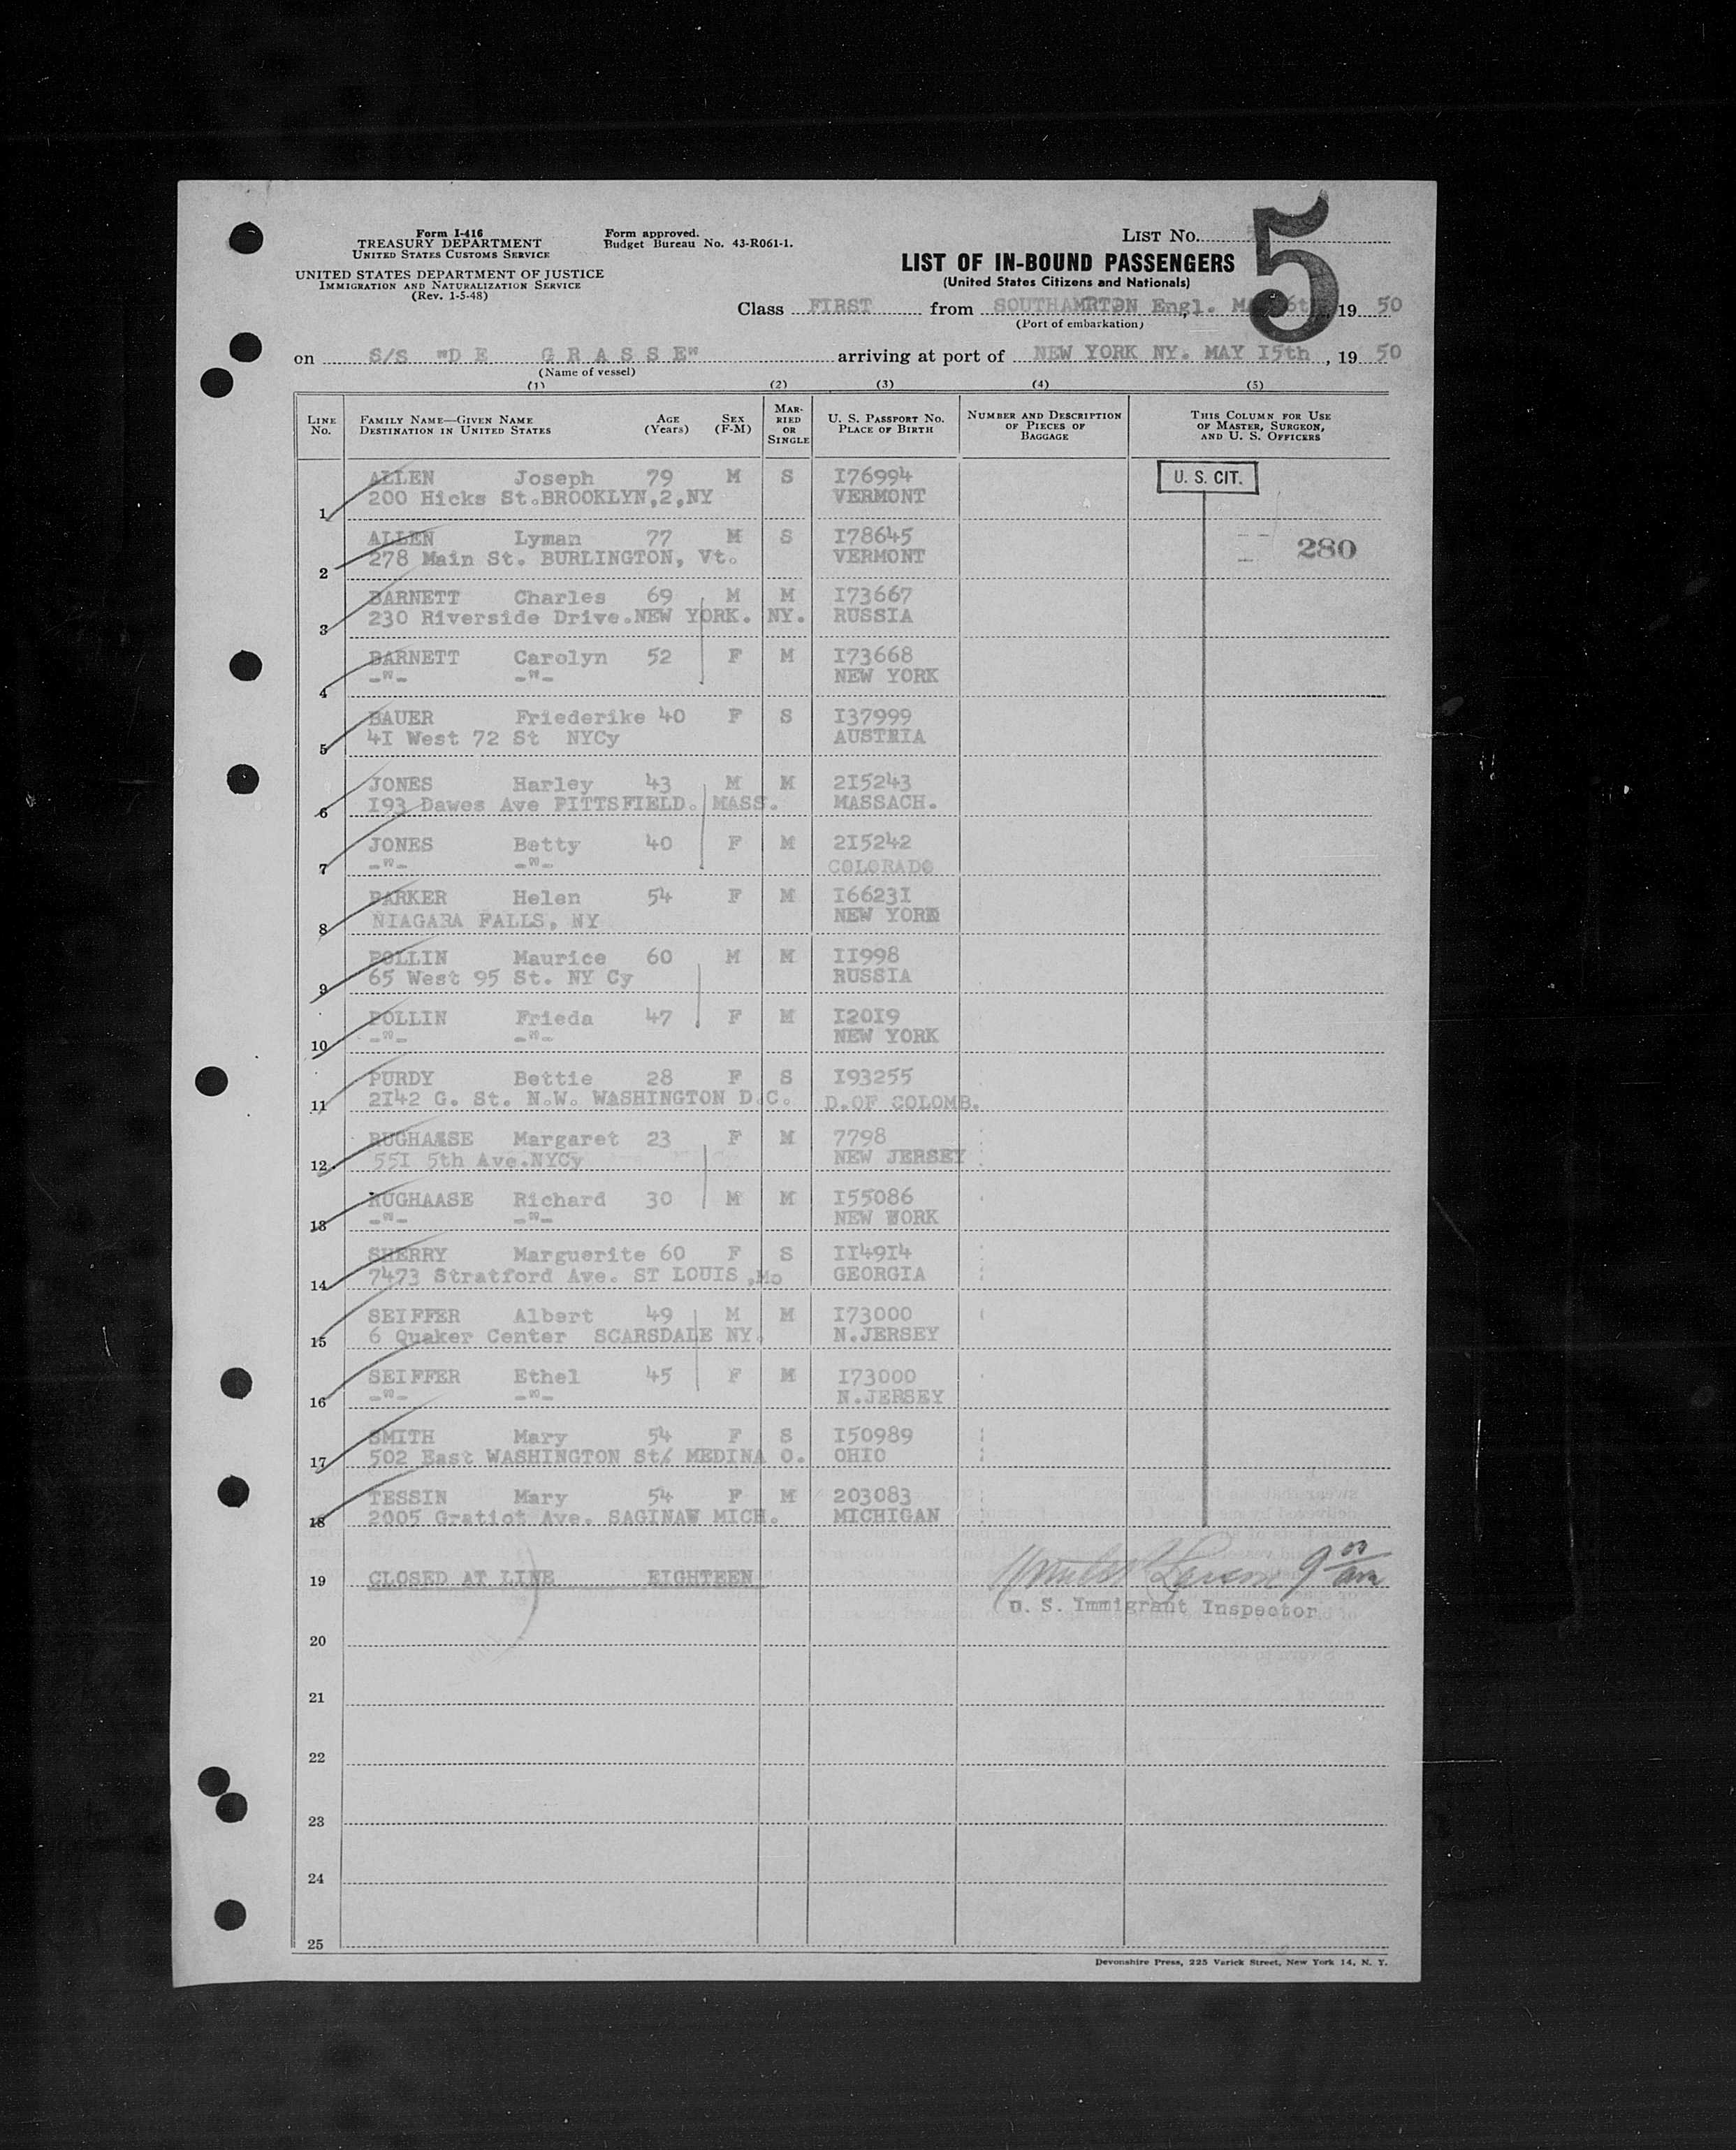 Form I-416
TREASURY DEPARTMENT
UNITED STATES CUSTOMS SERVICE
UNITED STATES DEPARTMENT OF JUSTICE
IMMIGRATION AND NATURALIZATION SERVICE
(Rev. 1-5-48)
Form approved.
Budget Bureau No. 43-R061-1.
LIST No. 5
LIST OF IN-BOUND PASSENGERS
(United States Citizens and Nationals)
Class FIRST from SOUTHAMRTON Engl. 19 50
(Port of embarkation)
on S/S "D E G R A S S E" arriving at port of NEW YORK NY. MAY I5th, 19 50
(Name of vessel)
(1) (2) (3) (4) (5)
LINE No. FAMILY NAME—GIVEN NAME DESTINATION IN UNITED STATES AGE (Years) SEX (F-M) MARRIED OR SINGLE U. S. PASSPORT NO. PLACE OF BIRTH NUMBER AND DESCRIPTION OF PIECES OF BAGGAGE THIS COLUMN FOR USE OF MASTER, SURGEON, AND U. S. OFFICERS
ALLEN Joseph 79 M S I76994 U. S. CIT.
1 200 Hicks St.BROOKLYN,2,NY VERMONT
ALLEN Lyman 77 M S I78645 280
2 278 Main St. BURLINGTON, Vt. VERMONT
BARNETT Charles 69 M M I73667
3 230 Riverside Drive.NEW YORK. NY. RUSSIA
BARNETT Carolyn 52 F M I73668
4 -"- -"- NEW YORK
BAUER Friederike 40 F S I37999
5 4I West 72 St NYCy AUSTRIA
JONES Harley 43 M M 2I5243
6 I93 Dawes Ave PITTSFIELD. MASS. MASSACH.
JONES Betty 40 F M 2I5242
7 -"- -"- COLORADO
PARKER Helen 54 F M I6623I
8 NIAGARA FALLS, NY NEW YORK
POLLIN Maurice 60 M M II998
9 65 West 95 St. NY Cy RUSSIA
POLLIN Frieda 47 F M I20I9
10 -"- -"- NEW YORK
PURDY Bettie 28 F S I93255
11 2I42 G. St. N.W. WASHINGTON D.C. D.OF COLOMB.
RUGHAASE Margaret 23 F M 7798
12 55I 5th Ave.NYCy NEW JERSEY
RUGHAASE Richard 30 M M I55086
13 -"- -"- NEW WORK
SHERRY Marguerite 60 F S II49I4
14 7473 Stratford Ave. ST LOUIS ,Mo GEORGIA
SEIFFER Albert 49 M M I73000
15 6 Quaker Center SCARSDALE NY. N.JERSEY
SEIFFER Ethel 45 F M I73000
16 -"- -"- N.JERSEY
SMITH Mary 54 F S I50989
17 502 East WASHINGTON St/ MEDINA O. OHIO
TESSIN Mary 54 F M 203083
18 2005 Gratiot Ave. SAGINAW MICH. MICHIGAN
19 CLOSED AT LINE EIGHTEEN 9 00 am
U. S. Immigrant Inspector
20
21
22
23
24
25
Devonshire Press, 225 Varick Street, New York 14, N. Y.